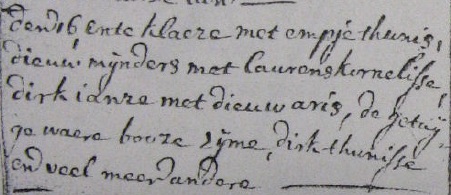 den 16 ente klaeze met empje thunis,
dieuw mÿnders met laurens kornelisse,
dirk ianze met dieuw aris, de getuÿ-
ge waere bouze sÿme, dirk thunisse
end veel meer andere